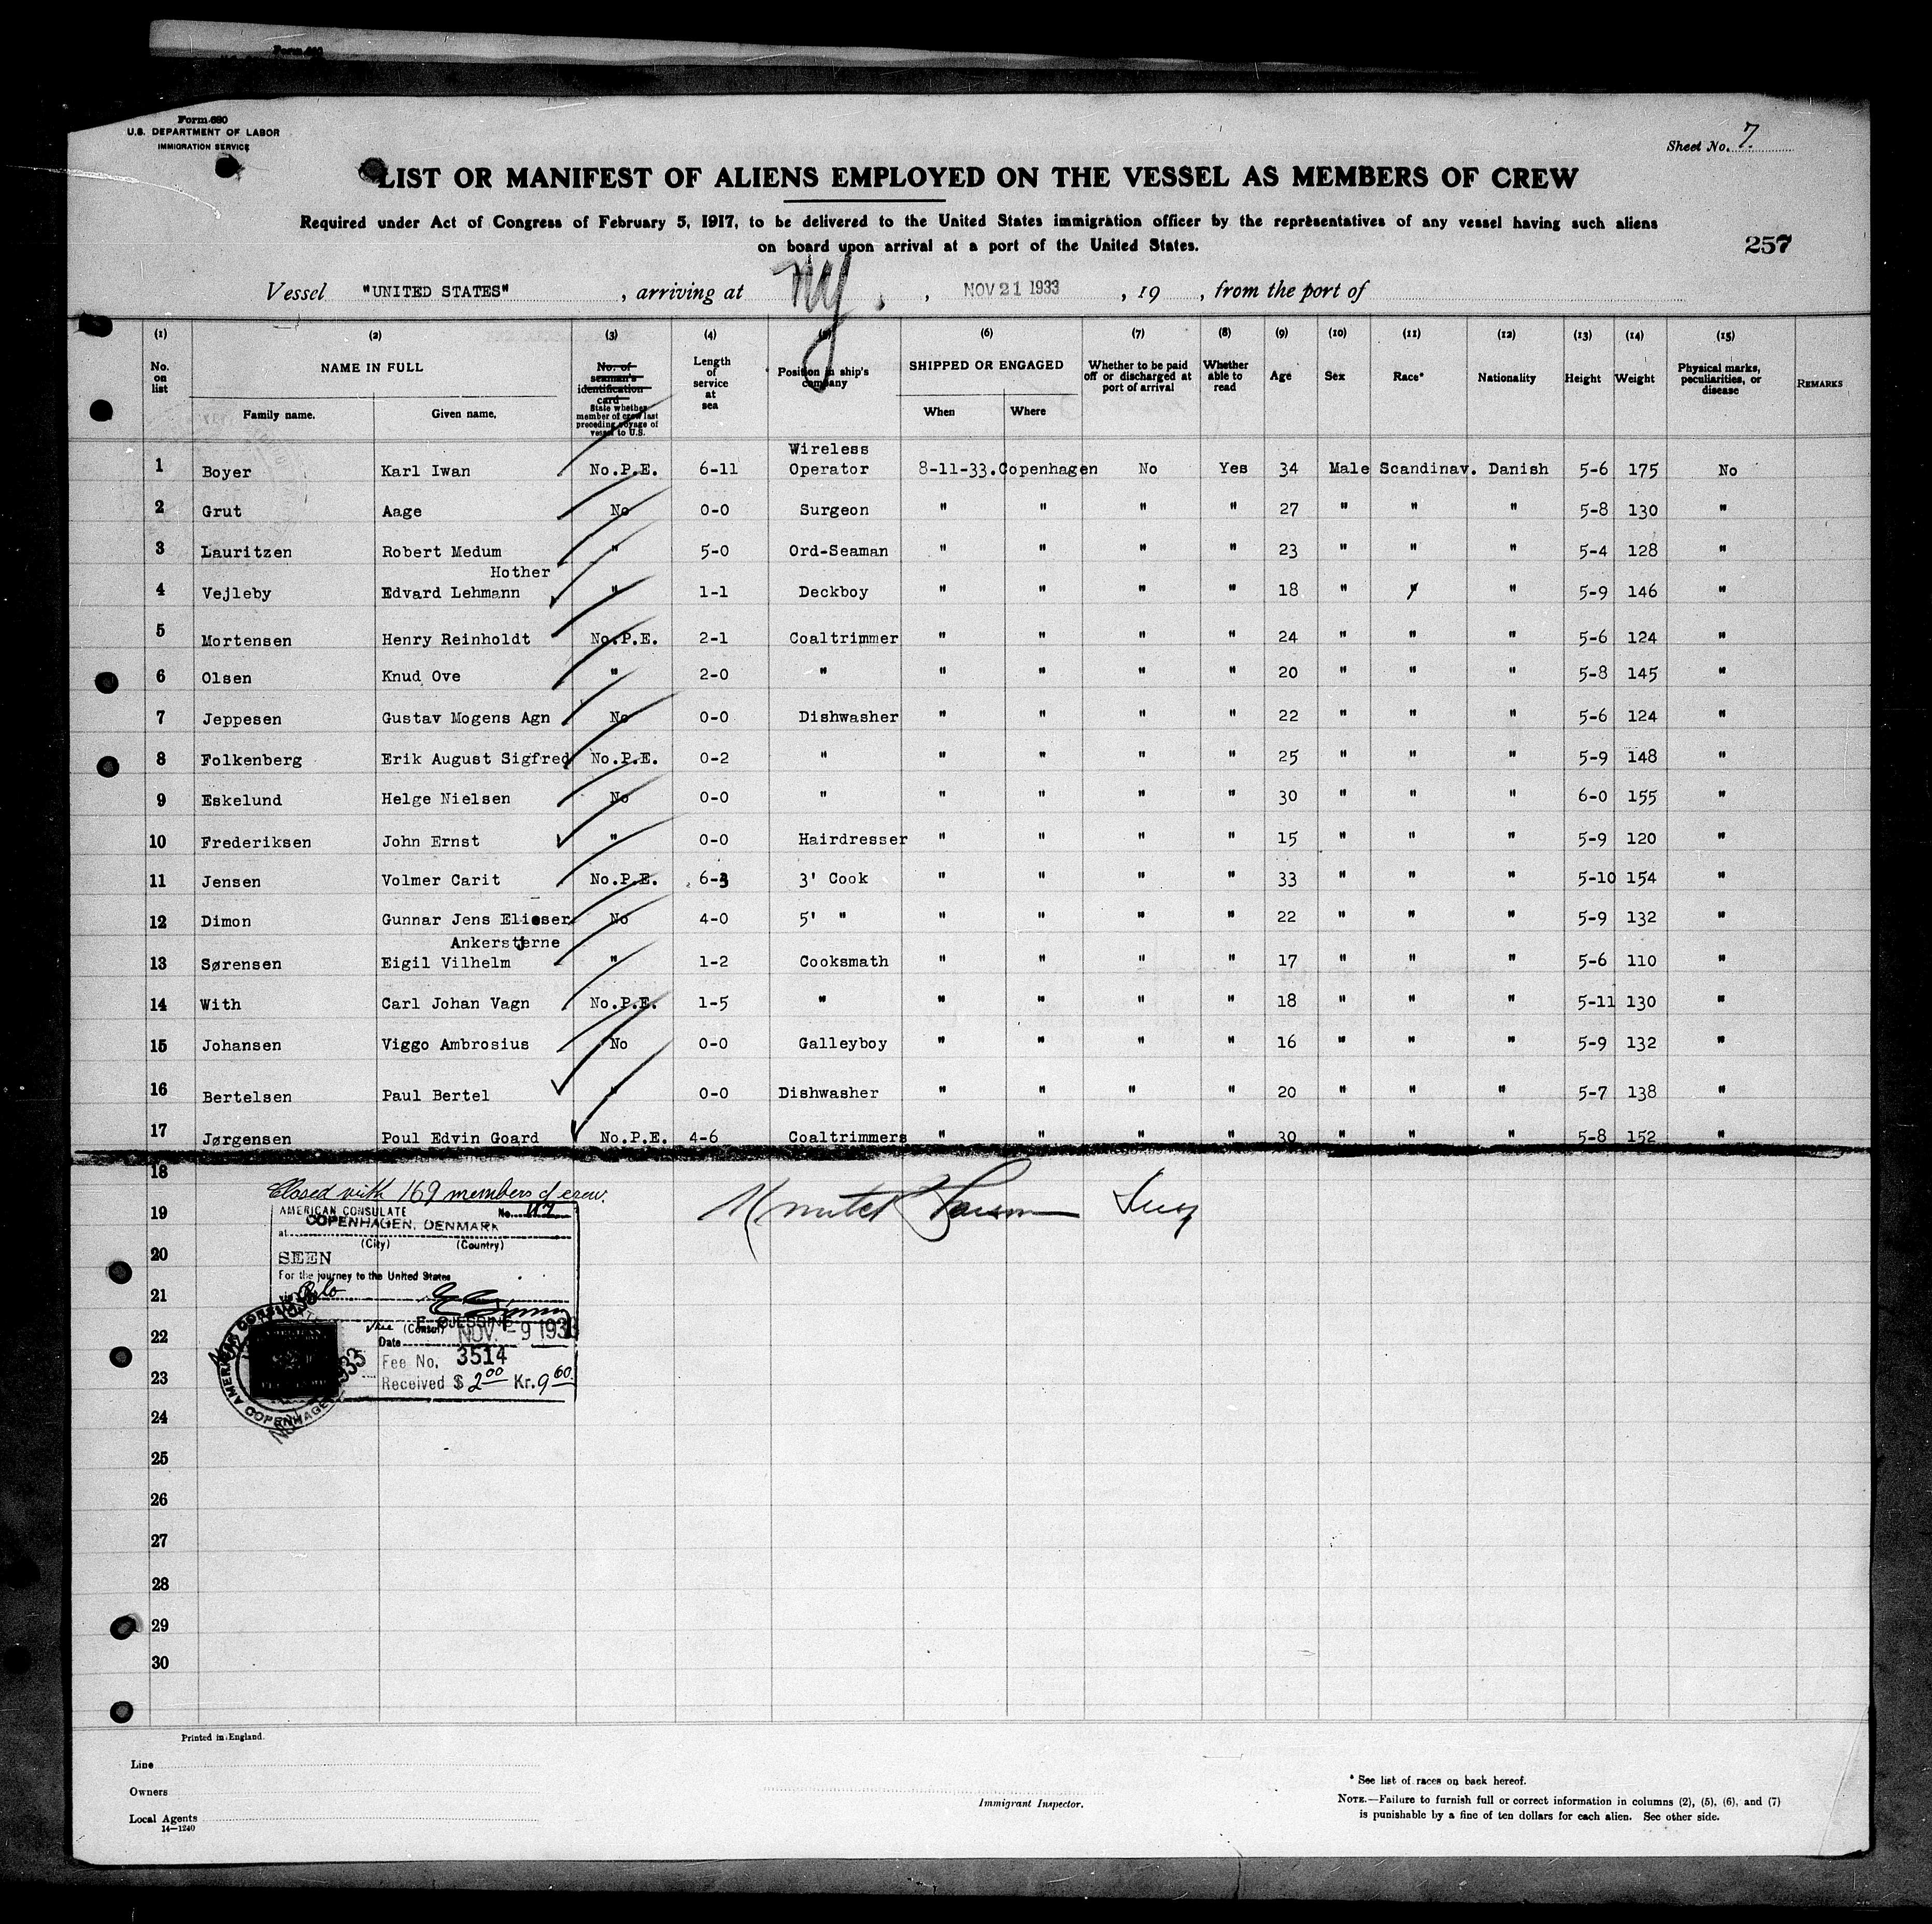 Form 680
U.S. DEPARTMENT OF LABOR
IMMIGRATION SERVICE
Sheet No. 7.
LIST OR MANIFEST OF ALIENS EMPLOYED ON THE VESSEL AS MEMBERS OF CREW
Required under Act of Congress of February 5, 1917, to be delivered to the United States immigration officer by the representatives of any vessel having such aliens
on board upon arrival at a port of the United States.
257
Vessel "UNITED STATES", arriving at NY., NOV 21 1933, 19 , from the port of
(1) (2) (3) (4) (5) (6) (7) (8) (9) (10) (11) (12) (13) (14) (15)
No. on list NAME IN FULL Family name. Given name. No. of seaman's identification card State whether member of crew last preceding voyage of vessel to U.S. Length of service at sea Position in ship's company SHIPPED OR ENGAGED When Where Whether to be paid off or discharged at port of arrival Whether able to read Age Sex Race* Nationality Height Weight Physical marks, peculiarities, or disease REMARKS
1 Boyer Karl Iwan No.P.E. 6-11 Wireless Operator 8-11-33. Copenhagen No Yes 34 Male Scandinav. Danish 5-6 175 No
2 Grut Aage No 0-0 Surgeon " " " " 27 " " " 5-8 130 "
3 Lauritzen Robert Medum " 5-0 Ord-Seaman " " " " 23 " " " 5-4 128 "
Hother
4 Vejleby Edvard Lehmann " 1-1 Deckboy " " " " 18 " " " 5-9 146 "
5 Mortensen Henry Reinholdt No.P.E. 2-1 Coaltrimmer " " " " 24 " " " 5-6 124 "
6 Olsen Knud Ove " 2-0 " " " " " 20 " " " 5-8 145 "
7 Jeppesen Gustav Mogens Agn No 0-0 Dishwasher " " " " 22 " " " 5-6 124 "
8 Folkenberg Erik August Sigfred No.P.E. 0-2 " " " " " 25 " " " 5-9 148 "
9 Eskelund Helge Nielsen No 0-0 " " " " " 30 " " " 6-0 155 "
10 Frederiksen John Ernst " 0-0 Hairdresser " " " " 15 " " " 5-9 120 "
11 Jensen Volmer Carit No.P.E. 6-3 3' Cook " " " " 33 " " " 5-10 154 "
12 Dimon Gunnar Jens Elieser No 4-0 5' " " " " " 22 " " " 5-9 132 "
Ankerstjerne
13 Sørensen Eigil Vilhelm " 1-2 Cooksmath " " " " 17 " " " 5-6 110 "
14 With Carl Johan Vagn No.P.E. 1-5 " " " " " 18 " " " 5-11 130 "
15 Johansen Viggo Ambrosius No 0-0 Galleyboy " " " " 16 " " " 5-9 132 "
16 Bertelsen Paul Bertel " 0-0 Dishwasher " " " " 20 " " " 5-7 138 "
17 Jørgensen Poul Edvin Goard No.P.E. 4-6 Coaltrimmers " " " " 30 " " " 5-8 152 "
18
Closed with 169 members of crew.
19
AMERICAN CONSULATE No.
at COPENHAGEN, DENMARK
(City) (Country)
20
SEEN
For the journey to the United States
21
via Oslo
22
Vice (Consul)
Date NOV. -9 1933
Fee No. 3514
23
Received $ 2.00 Kr. 9.60
AMERICAN CONSULATE COPENHAGEN
24
25
26
27
28
29
30
Printed in England.
Line
Owners
Local Agents
14—1240
Immigrant Inspector.
* See list of races on back hereof.
NOTE.—Failure to furnish full or correct information in columns (2), (5), (6), and (7)
is punishable by a fine of ten dollars for each alien. See other side.